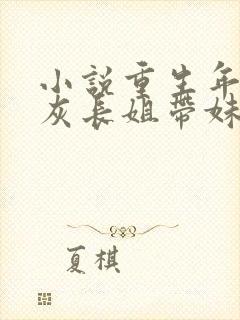 小說重生年
灰長姐帶妹
夏棋